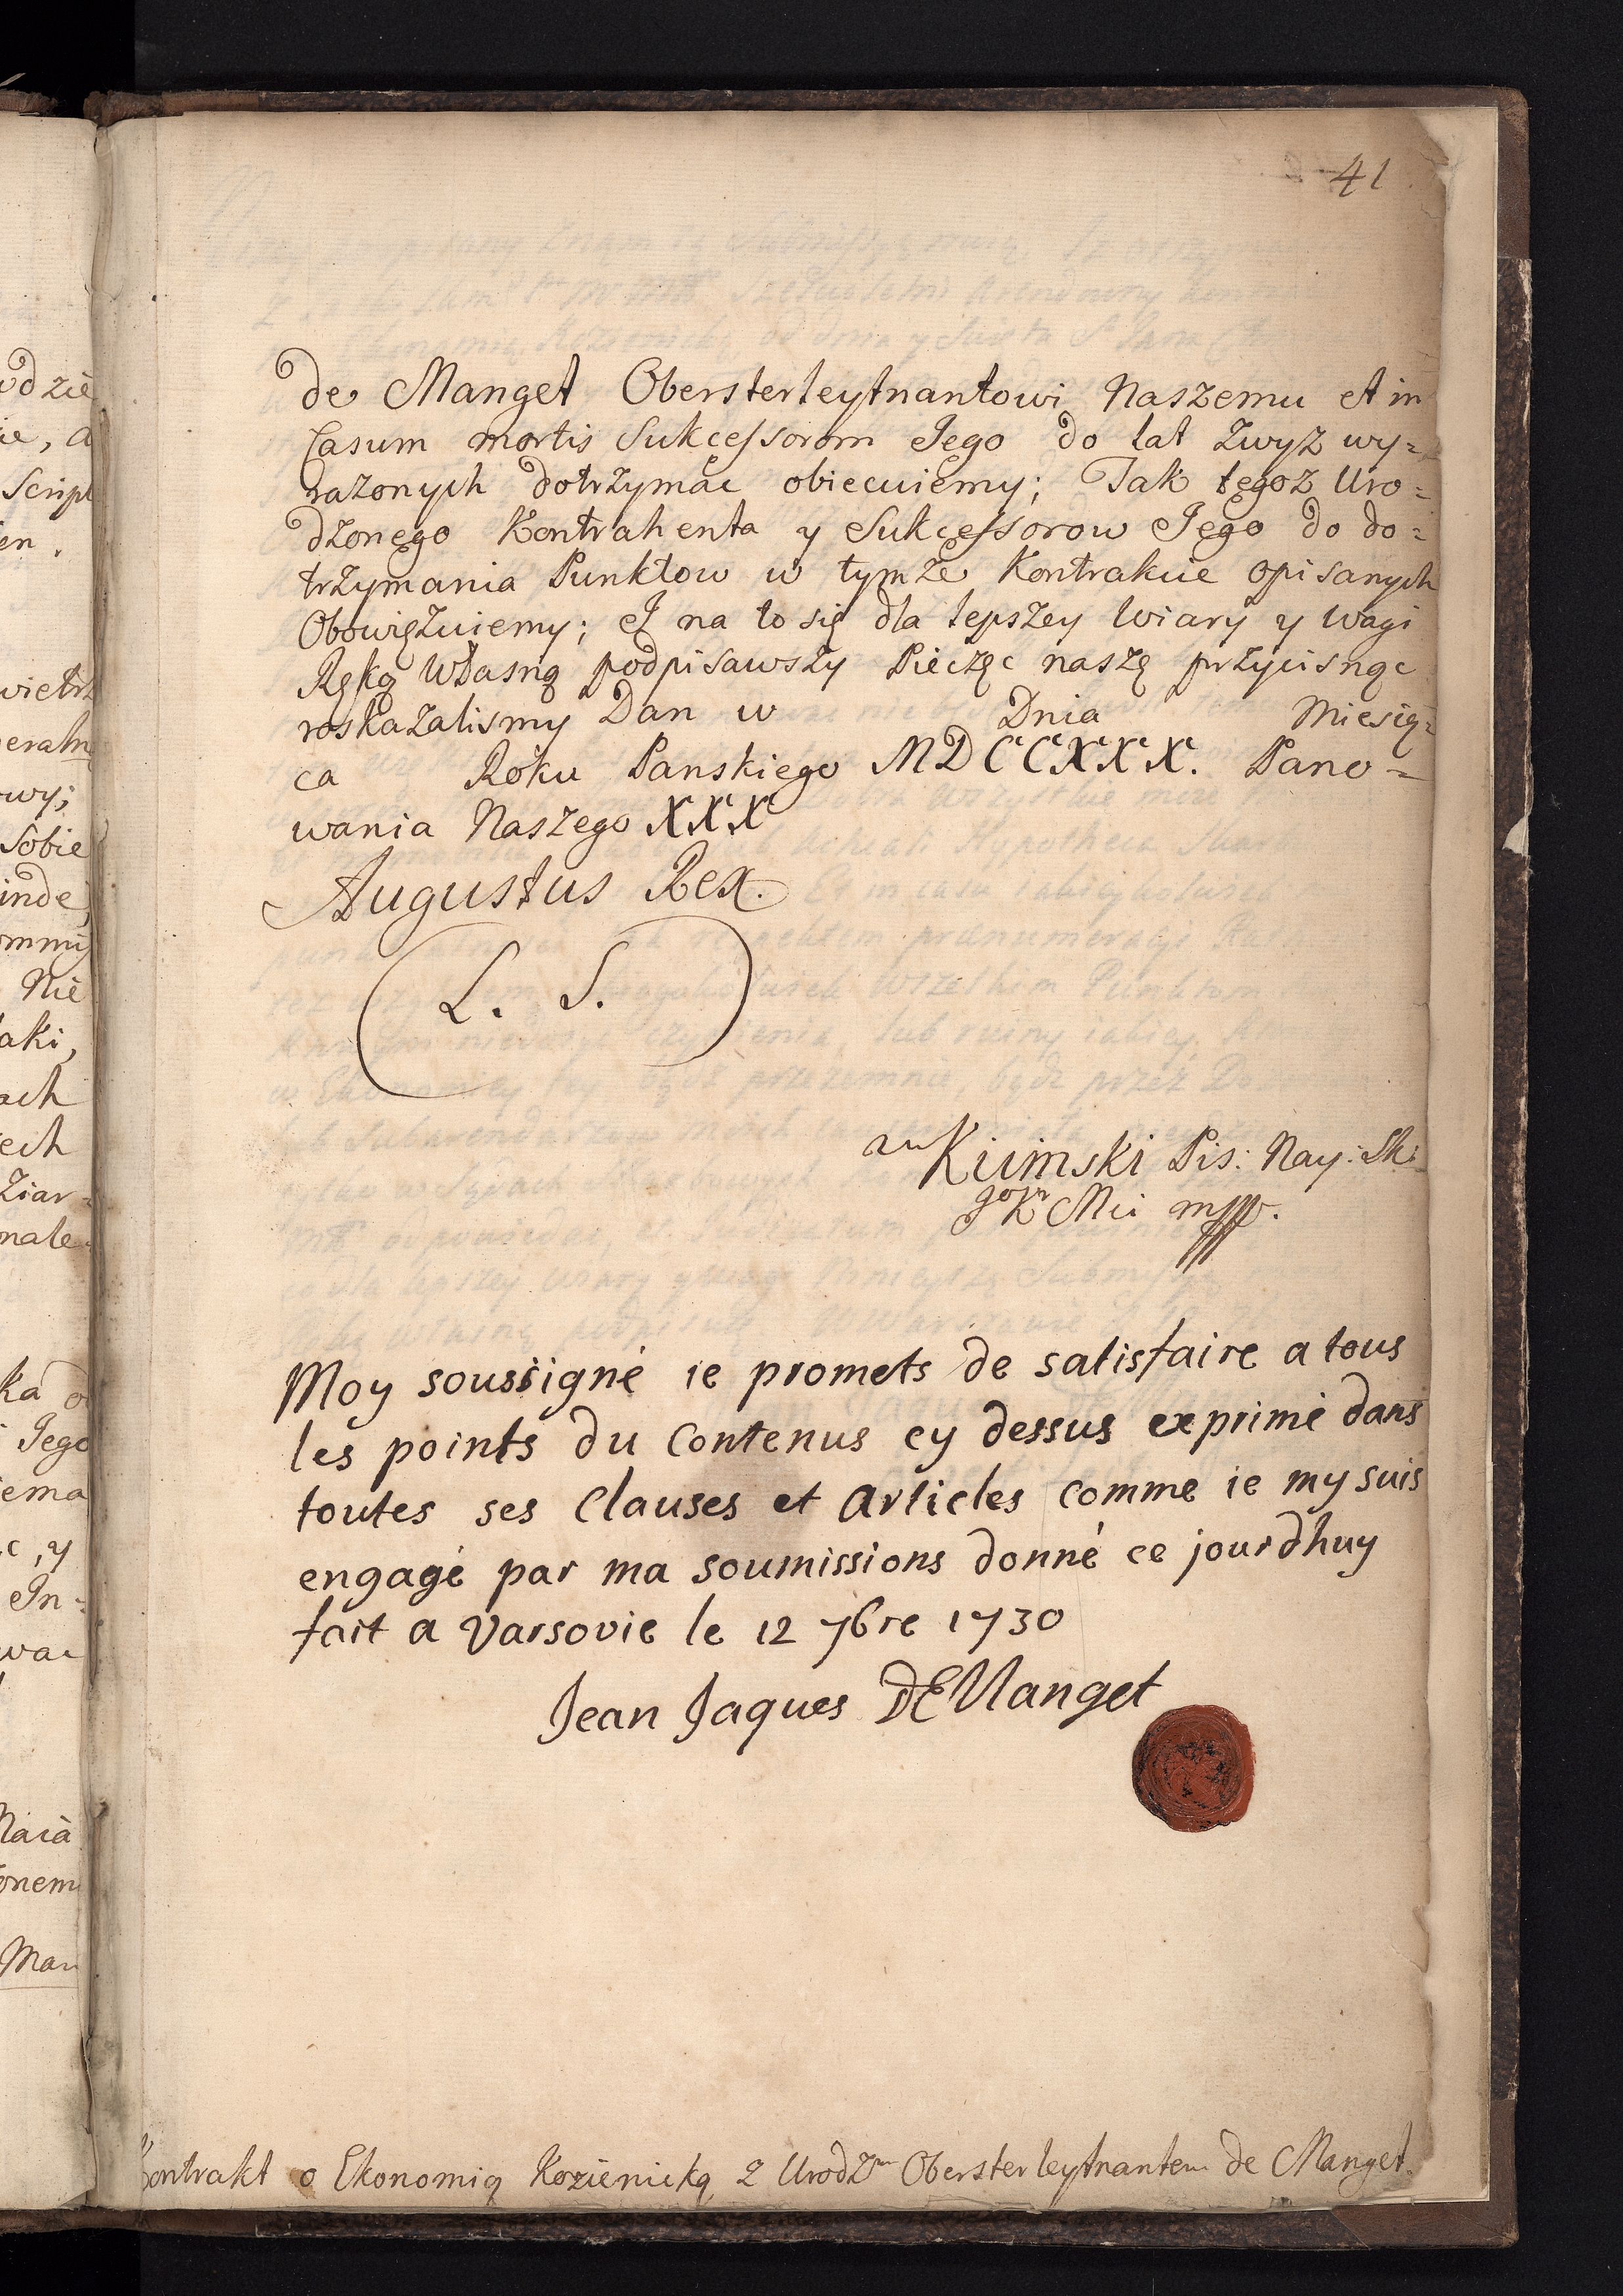 41
de Manget Obersterleytnantowi Naszemu et in
Casum mortis Sukcessorom Jego do lat zwyż wy=
razonych dotrzymać obiecuiemy; Tak tegoż Uro=
dzonego Kontrahenta y Sukcessorow Jego do do=
trzymania Punktow w tymże Kontrakcie opisanych
Obowięzuiemy; J na to się dla lepszey Wiary y wagi
Ręką Własną podpisawszy Pieczęc naszę przycisnąc
roskazalismy Dan w Dnia Miesią=
ca Roku Panskiego MDCCXXX. Pano=
wania Naszego XXX
Augustus Rex.
L. S.
Pis: Nay: Sk:
mpp.
Moy soussigné ie promets de satisfaire a tous
les points du Contenus cy dessus exprimé dans
toutes ses Clauses et Articles comme ie my suis
engagé par ma soumissions donné ce jourdhuy
fait a Varsovie le 12 7bre 1730
Jean Jaques DE Manget
Kontrakt o Ekonomią Kozienicką z Urodz^m Obersterleytnantem de Manget.
odzie
ie, a
Script
en.
wietrz
eraln
owy;
Sobie
inde
ommi
Nie
aki,
ach
iech
Ziar=
nale
ka o
Jego
iema
c, y
In=
wac
Naia
onem
Man